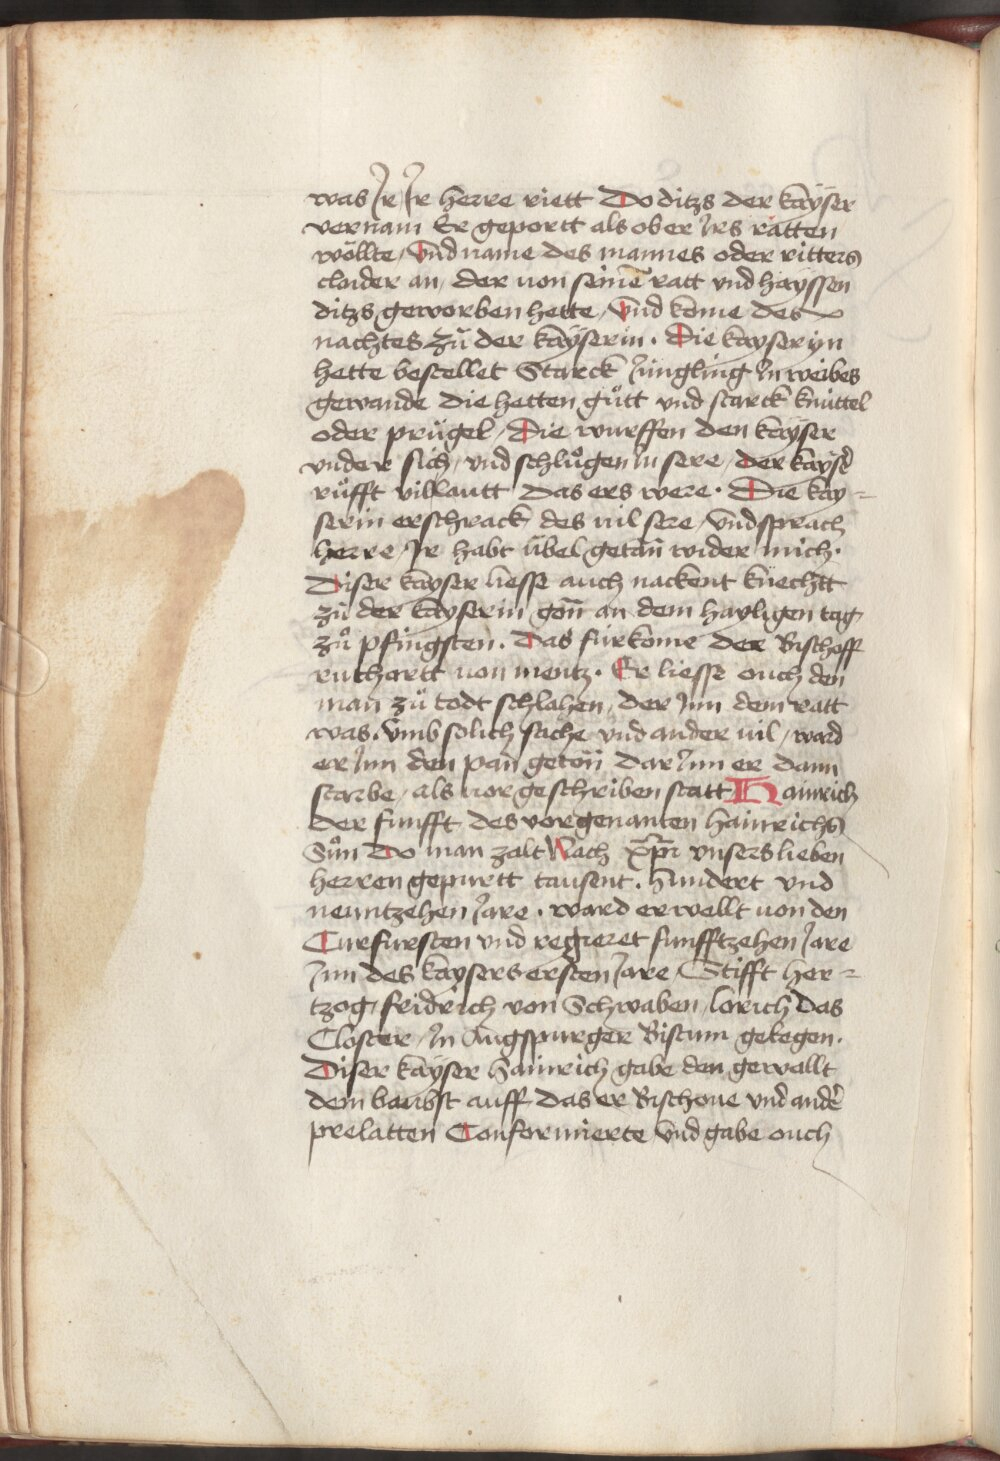 was Ir Ir herre riett Do ditzs der kayser
vernam Er geportt als ob er Irs ratten
wöllte / Vnd name des mannes oder ritters
claider an / der von seinē ratt vnd hayssen
ditzs geworben hette / Vnd kome des
nachtes zů der kayserin . Die kayseryn
hette bestellet Starck Jüngling In weibes
gewande die hetten gůtt vnd starck knüttel
oder prügel / Die wurffen den kayser
vnder sich / vnd schlůgen In sere / der kaysꝰ
růfft villautt das ers were . Die kay=
serin erschrack des vil sere / vnd sprach
herre / Ir habt übel getan wider mich .
Diser kayser liesse auch nackent knechtt
zů der kayserin gon̄ an dem hayligen tag
zů pfingsten . Das fürkome der Bischoff
ruthartt von mentz . Er liesse ouch den
man zů todt schlahen / der Jnn dem ratt
was . Vmb solich sache vnd ander vil / ward
er Jnn den pan geton dar Jnn er dann
starbe / als vor geschriben statt Hainrich
der funfft des vorgenanten hainrichs
Sůn Do man zalt Nach xp̄i vnsers lieben
herren gepurtt tausent . hundert vnd
neuntzehen Jare . ward erwellt von den
Curfursten vnd regieret funfftzehen Jare
Jnn des kaysers ersten Jare / Stifft her=
tzog fridrich von Schwaben / lorich das
Closter / In Augspurger Bistum gelegen .
Diser kayser hainrich gabe den gewallt
dem baubst auff das er Bischoue vnd andꝰ
prelatten Conformierte vnd gabe ouch